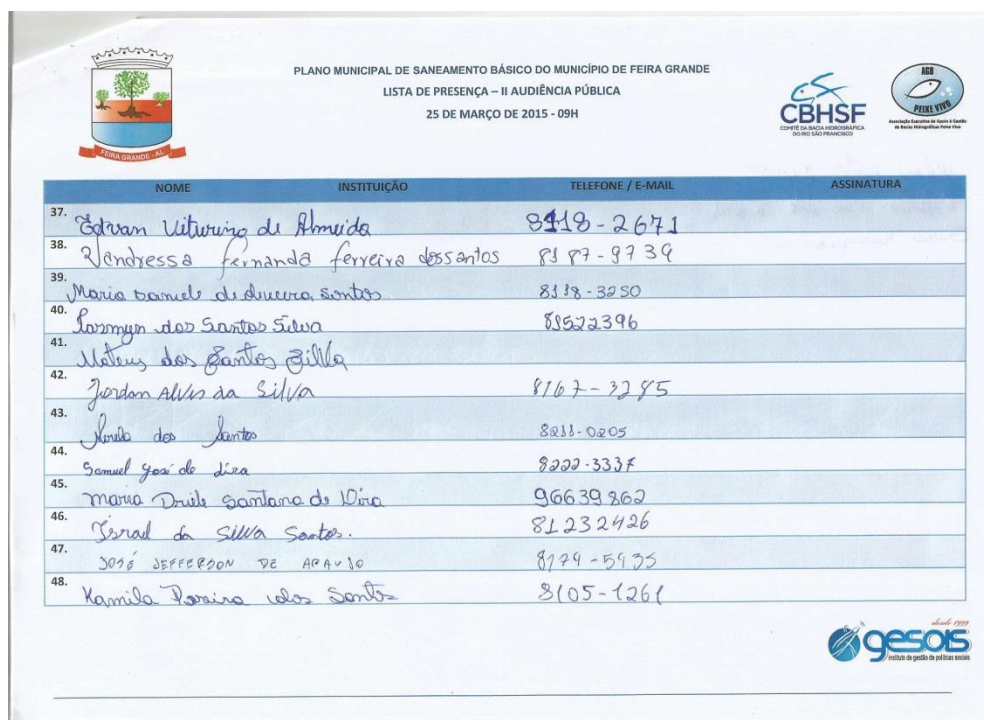 PLANO MUNICIPAL DE SANEAMENTO BÁSICO DO MUNICÍPIO DE FEIRA GRANDE
LISTA DE PRESENÇA – II AUDIÊNCIA PÚBLICA
25 DE MARÇO DE 2015 - 09H
FEIRA GRANDE - AL
CBHSF
COMITÊ DA BACIA HIDROGRÁFICA
DO RIO SÃO FRANCISCO
AGB
PEIXE VIVO
Associação Executiva de Apoio à Gestão
de Bacias Hidrográficas Peixe Vivo
NOME INSTITUIÇÃO TELEFONE / E-MAIL ASSINATURA
37. Edvan Viturino de Almeida 8118-2671
38. Vandressa fernanda ferreira dos santos 8187-9739
39. Maria santos 8118-3250
40. dos Santos Silva 81522396
41. Mateus dos Santos Silva
42. Jordan Alves da Silva 8167-3295
43. dos Santos 8211-0205
44. Samuel José de Lira 8222-3337
45. maria Santana de Lira 96639862
46. Israel da Silva Santos. 81232426
47. JOSÉ JEFFERSON DE ARAUJO 8179-5935
48. Kamila Pereira dos Santos 8105-1261
desde 1999
gesois
instituto de gestão de políticas sociais